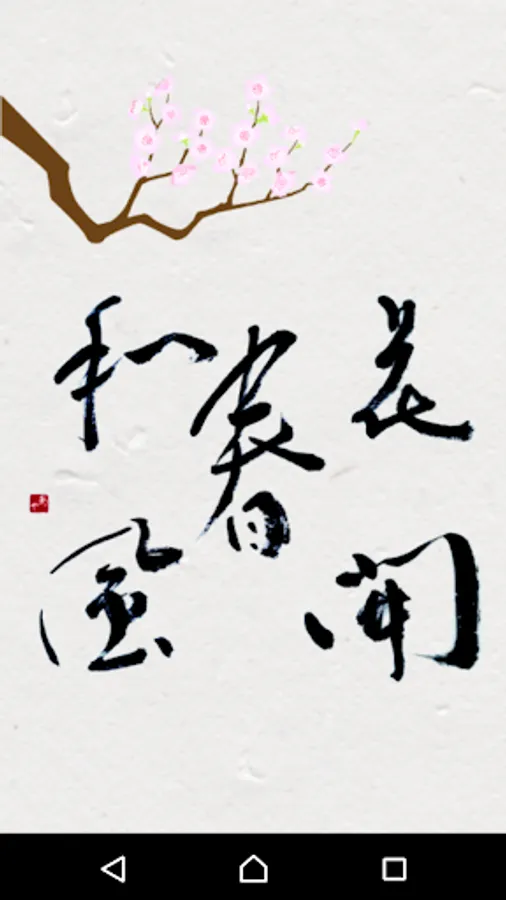 花開
春
和風